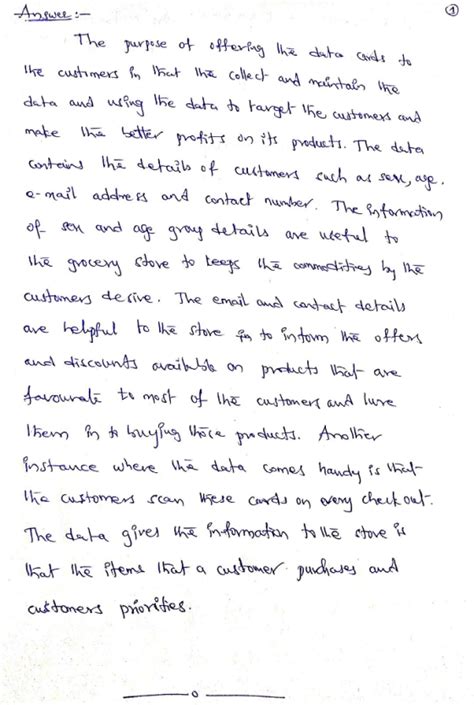 Answer :-
①
The purpose of offering the data cards to
the custmers in that the collect and maintain the
data and using the data to target the customers and
make the better profits on its products. The data
contains the details of customers such as sex, age.
e-mail address and contact number. The information
of sex and age group details are useful to
the grocery store to keeps the commodities by the
customers desire. The email and contact details
are helpful to the store to inform the offers
and discounts available on products that are
favourate to most of the customers and lure
them in to buying those products. Another
instance where the data comes handy is that
the customers scan these cards on every check out.
The data gives the information to the store is
that the items that a customer purchases and
customers priorities.